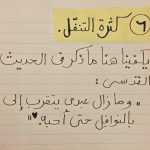 ٦ كثرة التنفّل.
يكفينا هنا ما ذكر في الحديث
القدسي:
" وما زال عبدي يتقرب إلى
بالنوافل حتى أحبه. "